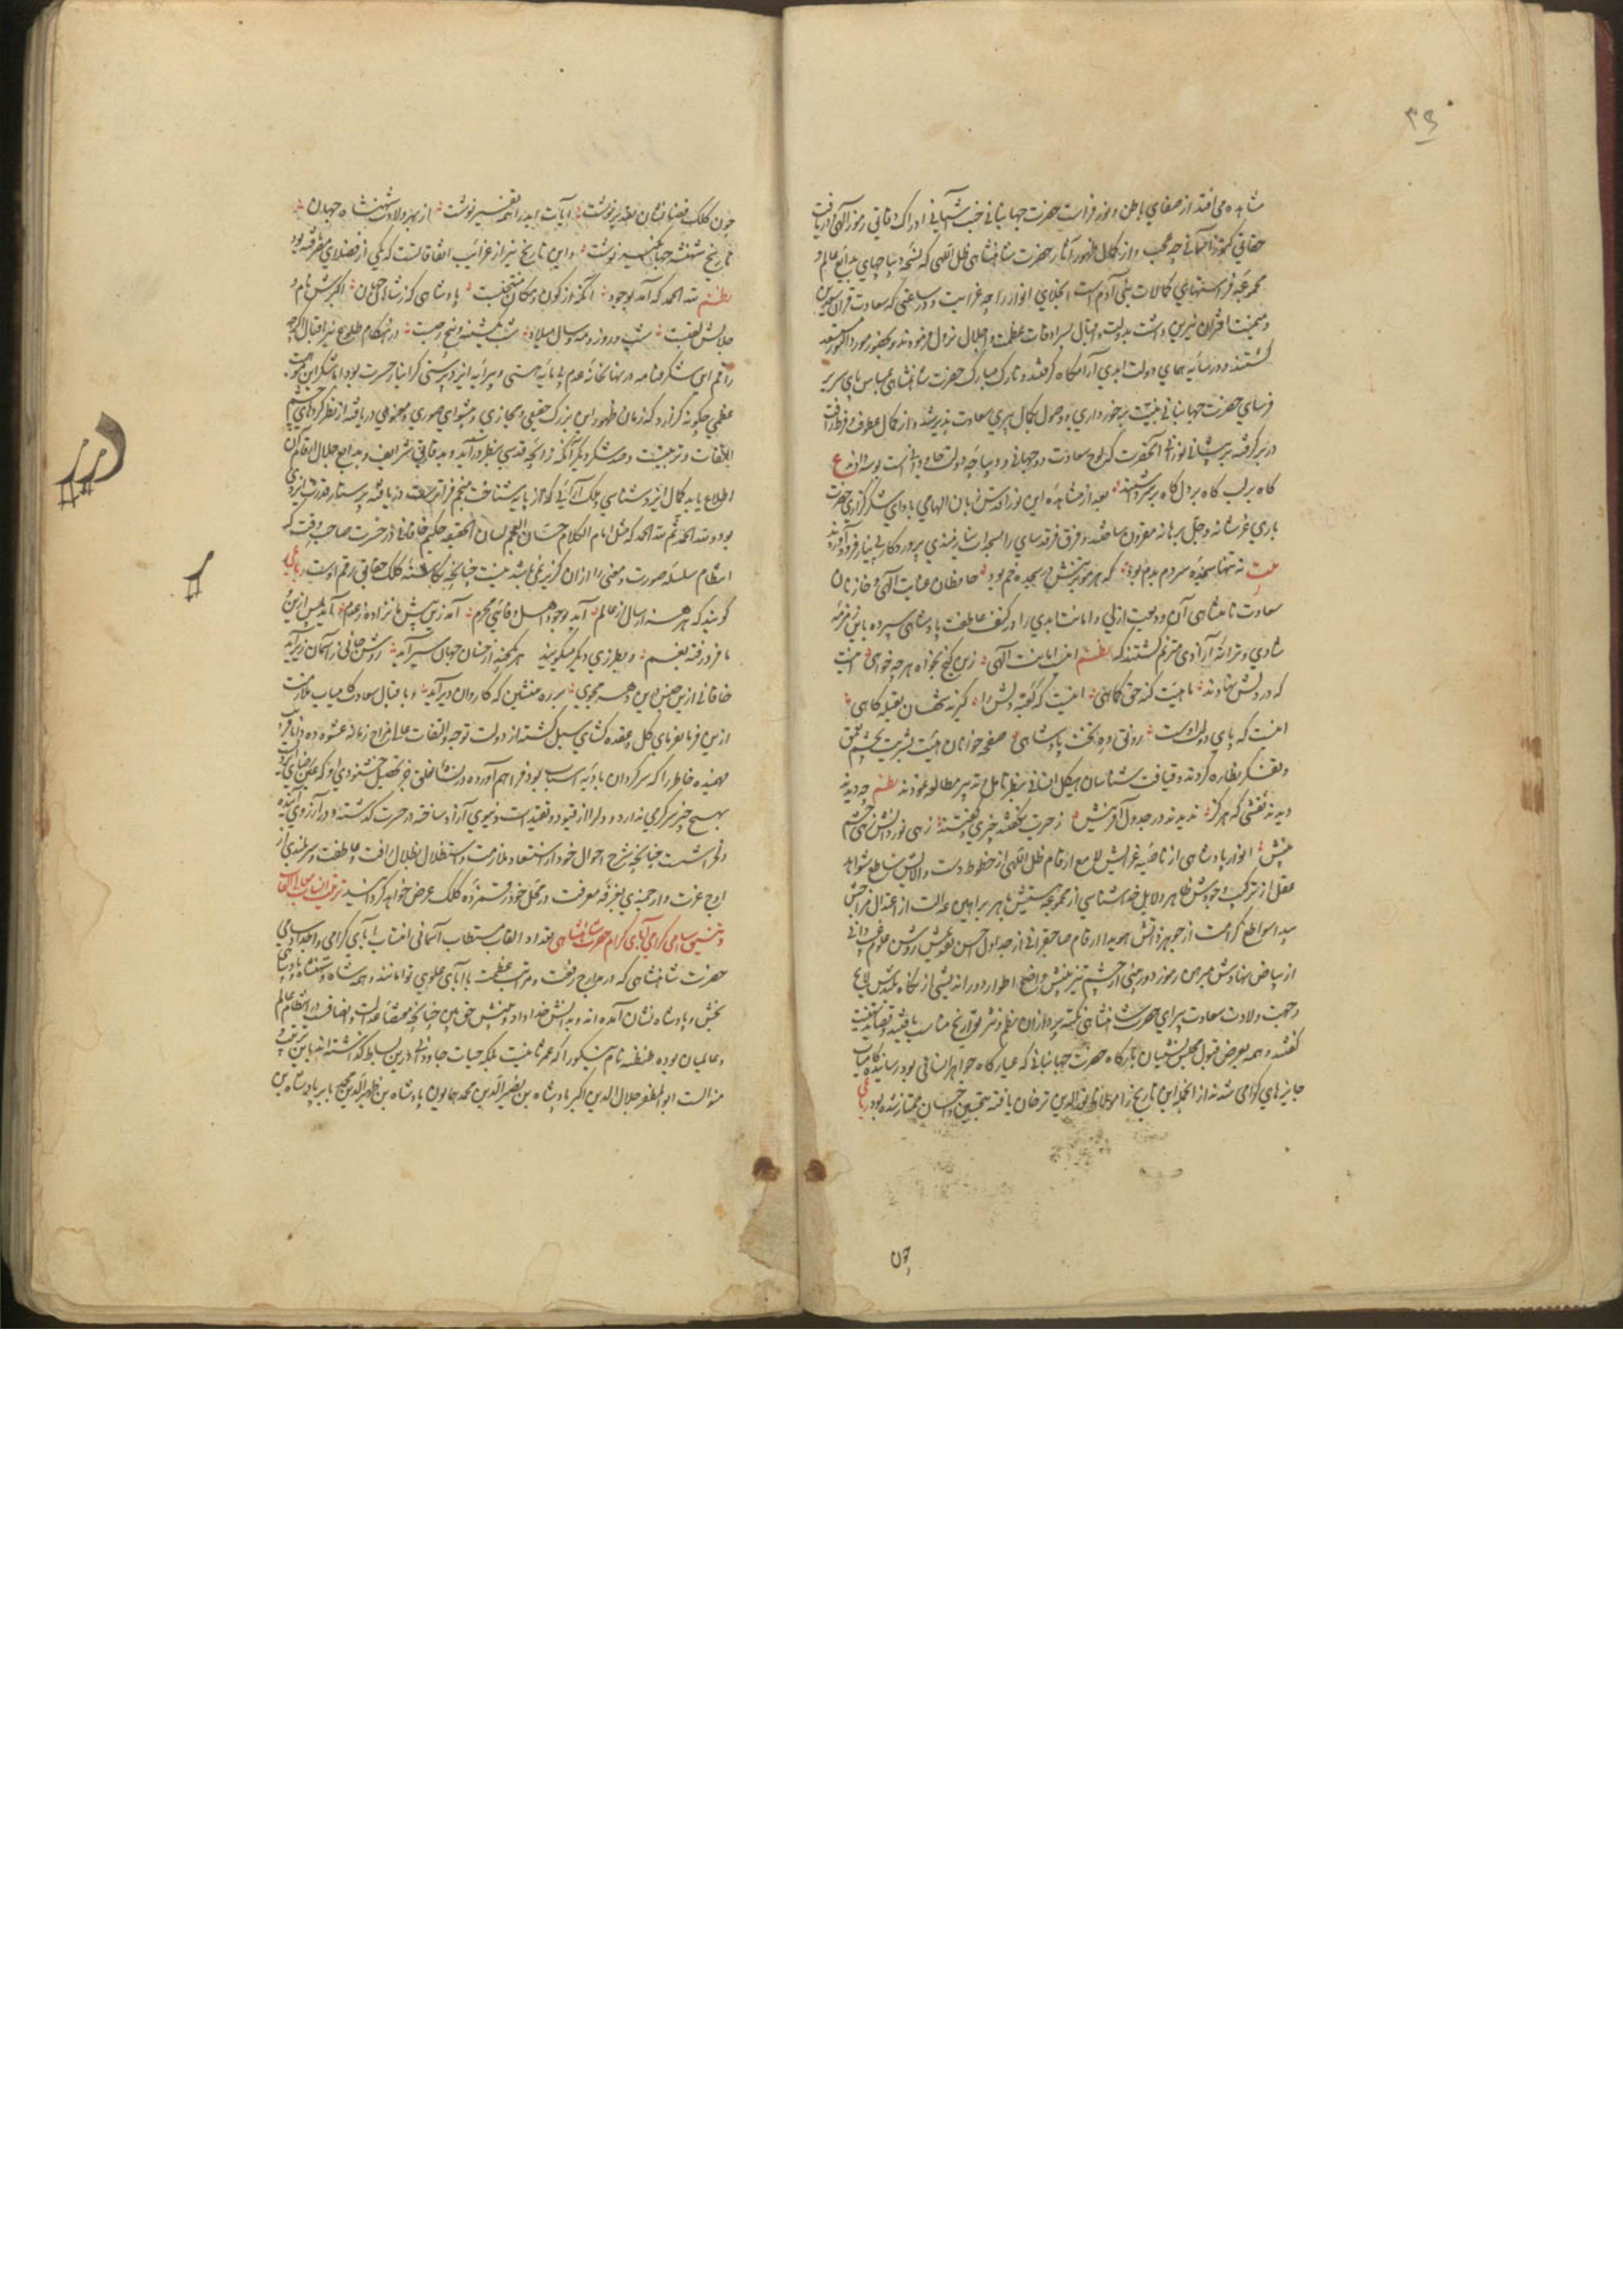 ۳۹
مشاهده می افتد از صفای باطن و نور فراست حضرت جهانبانی جنت آشیانی ادراک دقایق رموز الهی دریافت
حقایق کنوز آسمانی چه عجب و از کمال ظهور آثار حضرت شاهنشاهی ظل اللهی که نسخه دیباجهای بدایع عالم و
مجموعه فراستنهای کمالات بنی آدم است انجلای انوار را چه غرابت و در ساعتی که سعادت قران سعدین
و میمنت اقتران نیرین داشت بدولت و اقبال بسرادقات عظمت و اجلال نزول فرمودند و بحضور موردالنور مستسعد
گشتند و در سایه همای دولت ابدی آرامگاه گرفتند و تارک مبارک حضرت شاهنشاهی بپای سریر
فرسای حضرت جهانبانی بنیت برخورداری و وصول بکمال پیری سعادت پذیر شد و از کمال عطوفت و فرط رافت
در بر گرفته بر پیشانی نورانی آنحضرت که لوح سعادت دوجهانی و دیباچه دولت جاودانی است بوسه دادند ع
گاه بر لب گاه بر دل گاه بر سر شیند بعد از مشاهده این نور اقدس زبان الهامی بادای شکرگزاری حضرت
باری عز شانه و جل برهانه مقرون ساختند و فرق فرقدسای را بسجدات نیازمندی پروردگار بی نیاز فرود آوردند
بیت نه تنها سجده سر دم بدم بود که هر مو بر تنش در سجده خم بود حافظان عنایت الهی و خازنان
سعادت نامتناهی آن ودیعت ازلی و امانت ابدی را در کنف عاطفت پادشاهی سپرده باین زمزمه
شادی و ترانه آزادی مترنم گشتند که نظم اینت امانت الهی زین گنج بخواه هر چه خواهی اینت
که در دلش نهادند ماهیت کنه حق کماهی اینست که گفته دلش را گیرند شهان بقبله گاهی
اینت که پای دولت اوست رونق ده تخت پادشاهی صفحه خوانان هیئت بشریت بچشم تعمق
و تفکر نظاره کردند و قیافت شناسان هیکل انسانی بنظر تامل و تدبیر مطالعه نمودند نظم چه دیدند
دیدند نقشی که هرگز ندیدند در جدول آفرینش ز حیرت نگفتند چیزی و گفتند زهی نور دانش زهی چشم
بینش انوار پادشاهی از ناصیه غرایش لامع ارقام ظل اللهی از خطوط دست والایش ساطع شواهد
عقل از ترکیب وجودش ظاهر دلایل خداشناسی از مجموعه هستیش باهر براهین عدالت از اعتدال مزاجش
پیدا سواطع کرامت از جوهر ذاتش هویدا ارقام صاحبقرانی از جداول حسن نقوش روشن علوم غیب دانی
از بیاض نهادش مبرهن رموز دوربینی از چشم تیز بینش واضح اطوار دوراندیشی از نگاه بلندش لایح
و جهت ولادت سعادت پیرای حضرت شاهنشاهی نکته پردازان نظم و نثر تواریخ مناسب یافته و قصاید تهنیت
گفتند و همه بعرض قبول مجلس نشینان بارگاه حضرت جهانبانی که عیارگاه جواهر انسانی بود رسانیده کامیاب
جایزهای گرامی شدند از آنجمله این تاریخ را مولانا نورالدین ترخان یافته بتحسین و احسان ممتاز شده بود رباعی
چون
چون کلک قضا نشان تقدیر نوشت آیات ابد را همه تفسیر نوشت از بهر ولادت شهنشاه جهان
تاریخ شهنشه جهانگیر نوشت و این تاریخ نیز از غرائب اتفاقات است که یکی از فضلای متفرقه بود
نظم لله الحمد که آمد بوجود آنکه از کون و مکان منتخبست پادشاهی که ز شاهان جهان اکبرش نام و
جلالش لقبست شب و روز و مه و سال میلاد شب یکشنبه و پنج رجبست در هنگام طلوع نیر اقبال اگرچه
راقم این شکرفنامه در نهانخانه عدم بی مایه هستی و پیرایه ایزدپرستی گرانبار حسرت بود اما شکر این موهبت
عظمی چگونه گزارد که زمان ظهور این بزرگ حقیقی و مجازی و پیشوای صوری و معنوی دریافته از نظر کردهای چشم
التفات و تربیت و صد شکر دیگر آنکه زایچه قدسی بنظر درآید و به دقایق شرایف و بدایع جلال ارقام آن
اطلاع یابد کمال ایزدشناسی و ملک آرائی که از پایه شناخت منجم فراتر است دریافته پرستار قدرت ایزدی
بود و لله الحمد ثم لله الحمد که مثل امام الکلام حسان العجم لسان الحقیقه حکیم خاقانی در حسرت صاحب وقت که
انتظام سلسله صورت و معنی را از آن گزیر نمی باشد نیست چنانچه نگاشته کلک حقایق رقم اوست رباعی
گویند که هر هزار سال از عالم آید بوجود اهل وفائی محرم آمد زین پیش و ما نزاده ز عدم آید پس ازین و
ما فرو رفته بغم و بطرزی دیگر میگویند هر یکچند از جهان جهان سیر آید روشن جانی ز آسمان زیر آید
خاقانی ازین جنس درین دهر مجوی بر ره منشین که کاروان دیر آید و باقبال سعادت کامیاب ملازمت
ازین فرمانفرمای کل و عقده گشای سبل گشته از دولت توجه و التفات
بهیچ چیز سرگرمی ندارد و دلرا از قیود و تقیدات دنیوی آزاد ساخته در حسرت گذشته و در آرزوی آینده
نگذاشت چنانچه شرح احوال خود از استسعاد ملازمت و استظلال بظلال رافت و عاطفت و سربلندی از
اوج عزت و ارجمندی بغرفه معرفت در محل خود رقمزده کلک عرض خواهد گردانید
و تنسیق اسامی گرامی آبای کرام حضرت شاهنشاهی تعداد القاب مستطاب آسمانی انتساب آبای گرامی و اجداد سامی
حضرت شاهنشاهی که در مدارج رفعت و مراتب عظمت با آبای علوی توامانند و همه شاه و شهنشاه پادشاهی
بخش و پادشاه نشان آمده اند و بدانش خداداد و بینش حق بین چنانچه مقتضای عدالت و انصاف در انتظام عالم
و عالمیان بوده طنطنه نام نیکو را که عمر ثانیست بلکه حیات جاودانی درین بساط گذاشته اند باین ترتیب و
منوالست ابوالمظفر جلال الدین اکبر پادشاه بن نصیرالدین محمد همایون پادشاه بن ظهیرالدین محمد بابر پادشاه بن